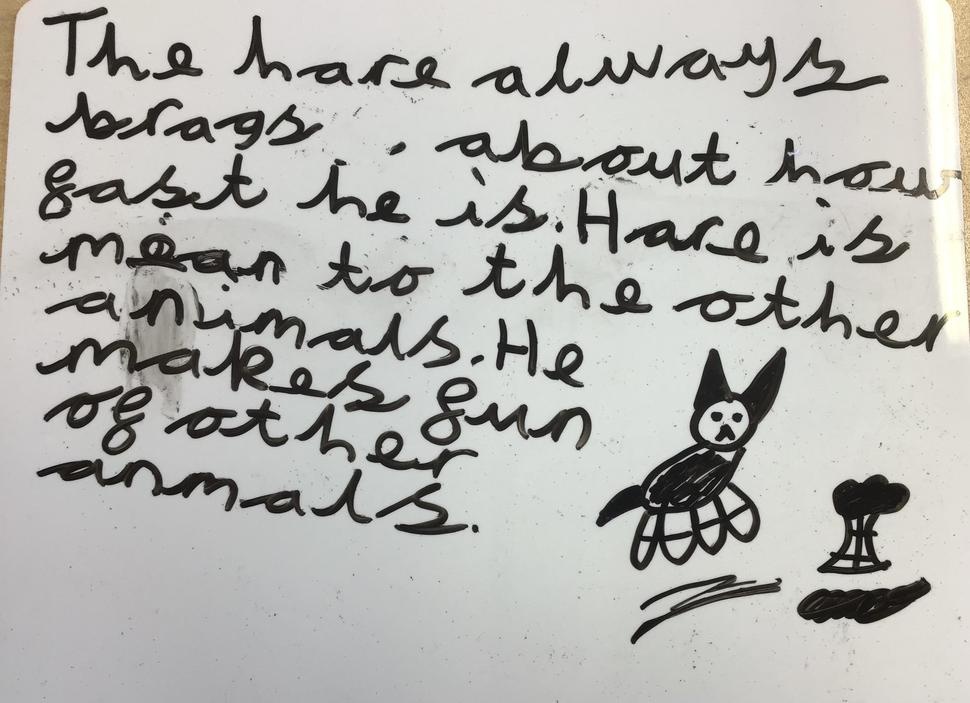 The hare always
brags about how
fast he is. Hare is
mean to the other
animals. He
makes fun
of other
anmals.